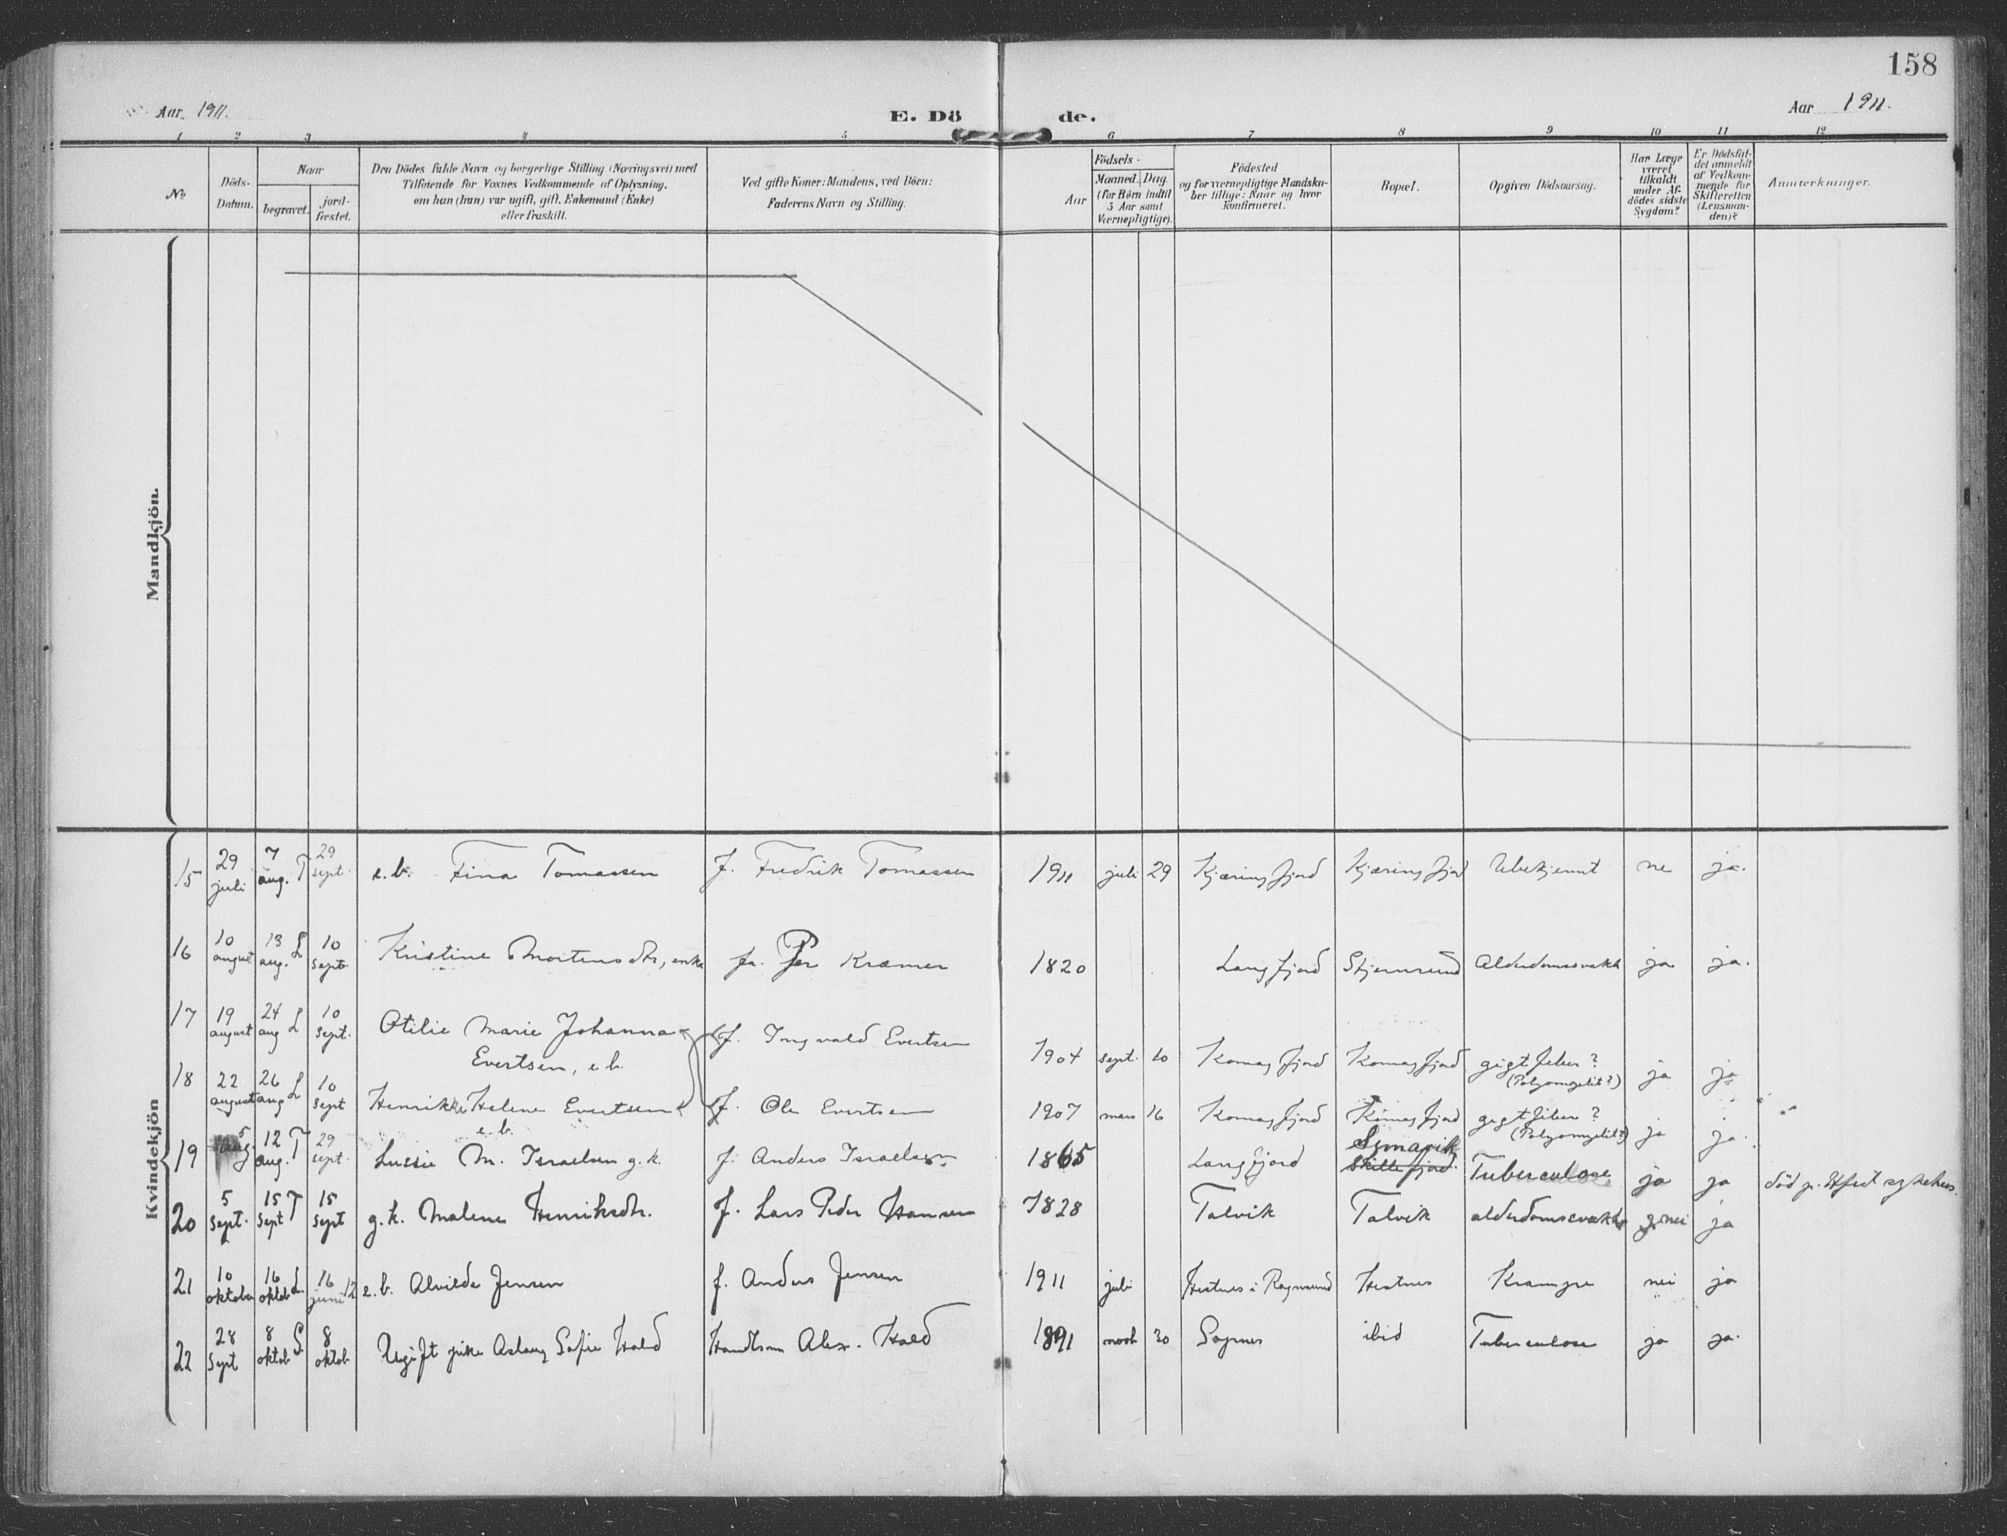 158
Aar 1911.
E. Dö de.
Aar 1911.
1 2 3 4 5 6 7 8 9 10 11 12
No
Döds-
Datum.
Naar
begravet.
jord-
festet.
Den Dödes fulde Navn og borgerlige Stilling (Næringsvei) med
Tilföiende for Voxnes Vedkommende af Oplysning,
om han (hun) var ugift, gift, Enkemand (Enke)
eller fraskilt.
Ved gifte Koner: Mandens, ved Börn:
Faderens Navn og Stilling.
Födsels-
Aar
Maaned. Dag.
(for Börn indtil
5 Aar samt
Værnepligtige).
Födested
og for værnepligtige Mandska-
ber tillige: Naar og hvor
konfirmeret.
Bopæl.
Opgiven Dödsaarsag.
Har Læge
været
tilkaldt
under Af-
dödes sidste
Sygdom?
Er Dödsfal-
det anmeldt
af Vedkom-
mende for
Skifteretten
(Lensman-
den)?
Anmærkninger.
Mandkjön.
Kvindekjön
15 29 juli 7 aug. T 29 sept. e.b. Fina Tomassen f. Fredrik Tomassen 1911 juli 29 Kjæringfjord Kjæringfjord Ubekjennt ne ja.
16 10 august 13 aug. L 10 sept. Kristine Mortensdtr, enke Per Kræmer 1820 Langfjord Stjernsund Alderdomssvakh ja ja.
17 19 august 24 aug L 10 sept. Otilie Marie Johanna
Evertsen, e.b. f. Ingvald Evertsen 1904 sept. 20 Komagfjord Komagfjord gigtfeber?
(Polyomyelit?) ja ja
18 22 august 26 aug L 10 sept Henrikke Helene Evertsen
e.b. f. Ole Evertsen 1907 mars 16 Komagfjord Komagfjord gigtfeber?
(Polyomyelit?) ja ja.
19 5 aug. 12 aug. T 29 sept. Lussie M. Israelsen g.k. f. Anders Israelsen 1865 Langfjord Skillefjord Tuberculose ja ja
20 5 sept. 15 sept T 15 sept g.k. Malene Henriksdtr. f. Lars Peder Hansen 1828 Talvik Talvik alderdomssvakh nei ja
21 10 oktober 16 oktob L. 16 juni 12 e.b. Alvilde Jensen f. Anders Jensen 1911 juli Hestnes i Rognsund Hestnes Krampe nei ja
22 28 sept 8 oktob L 8 oktob Ugift pike Aslaug Sofie Hald Handlsm Alex. Hald 1891 novb 20 Sopnes ibid Tuberculose ja ja.